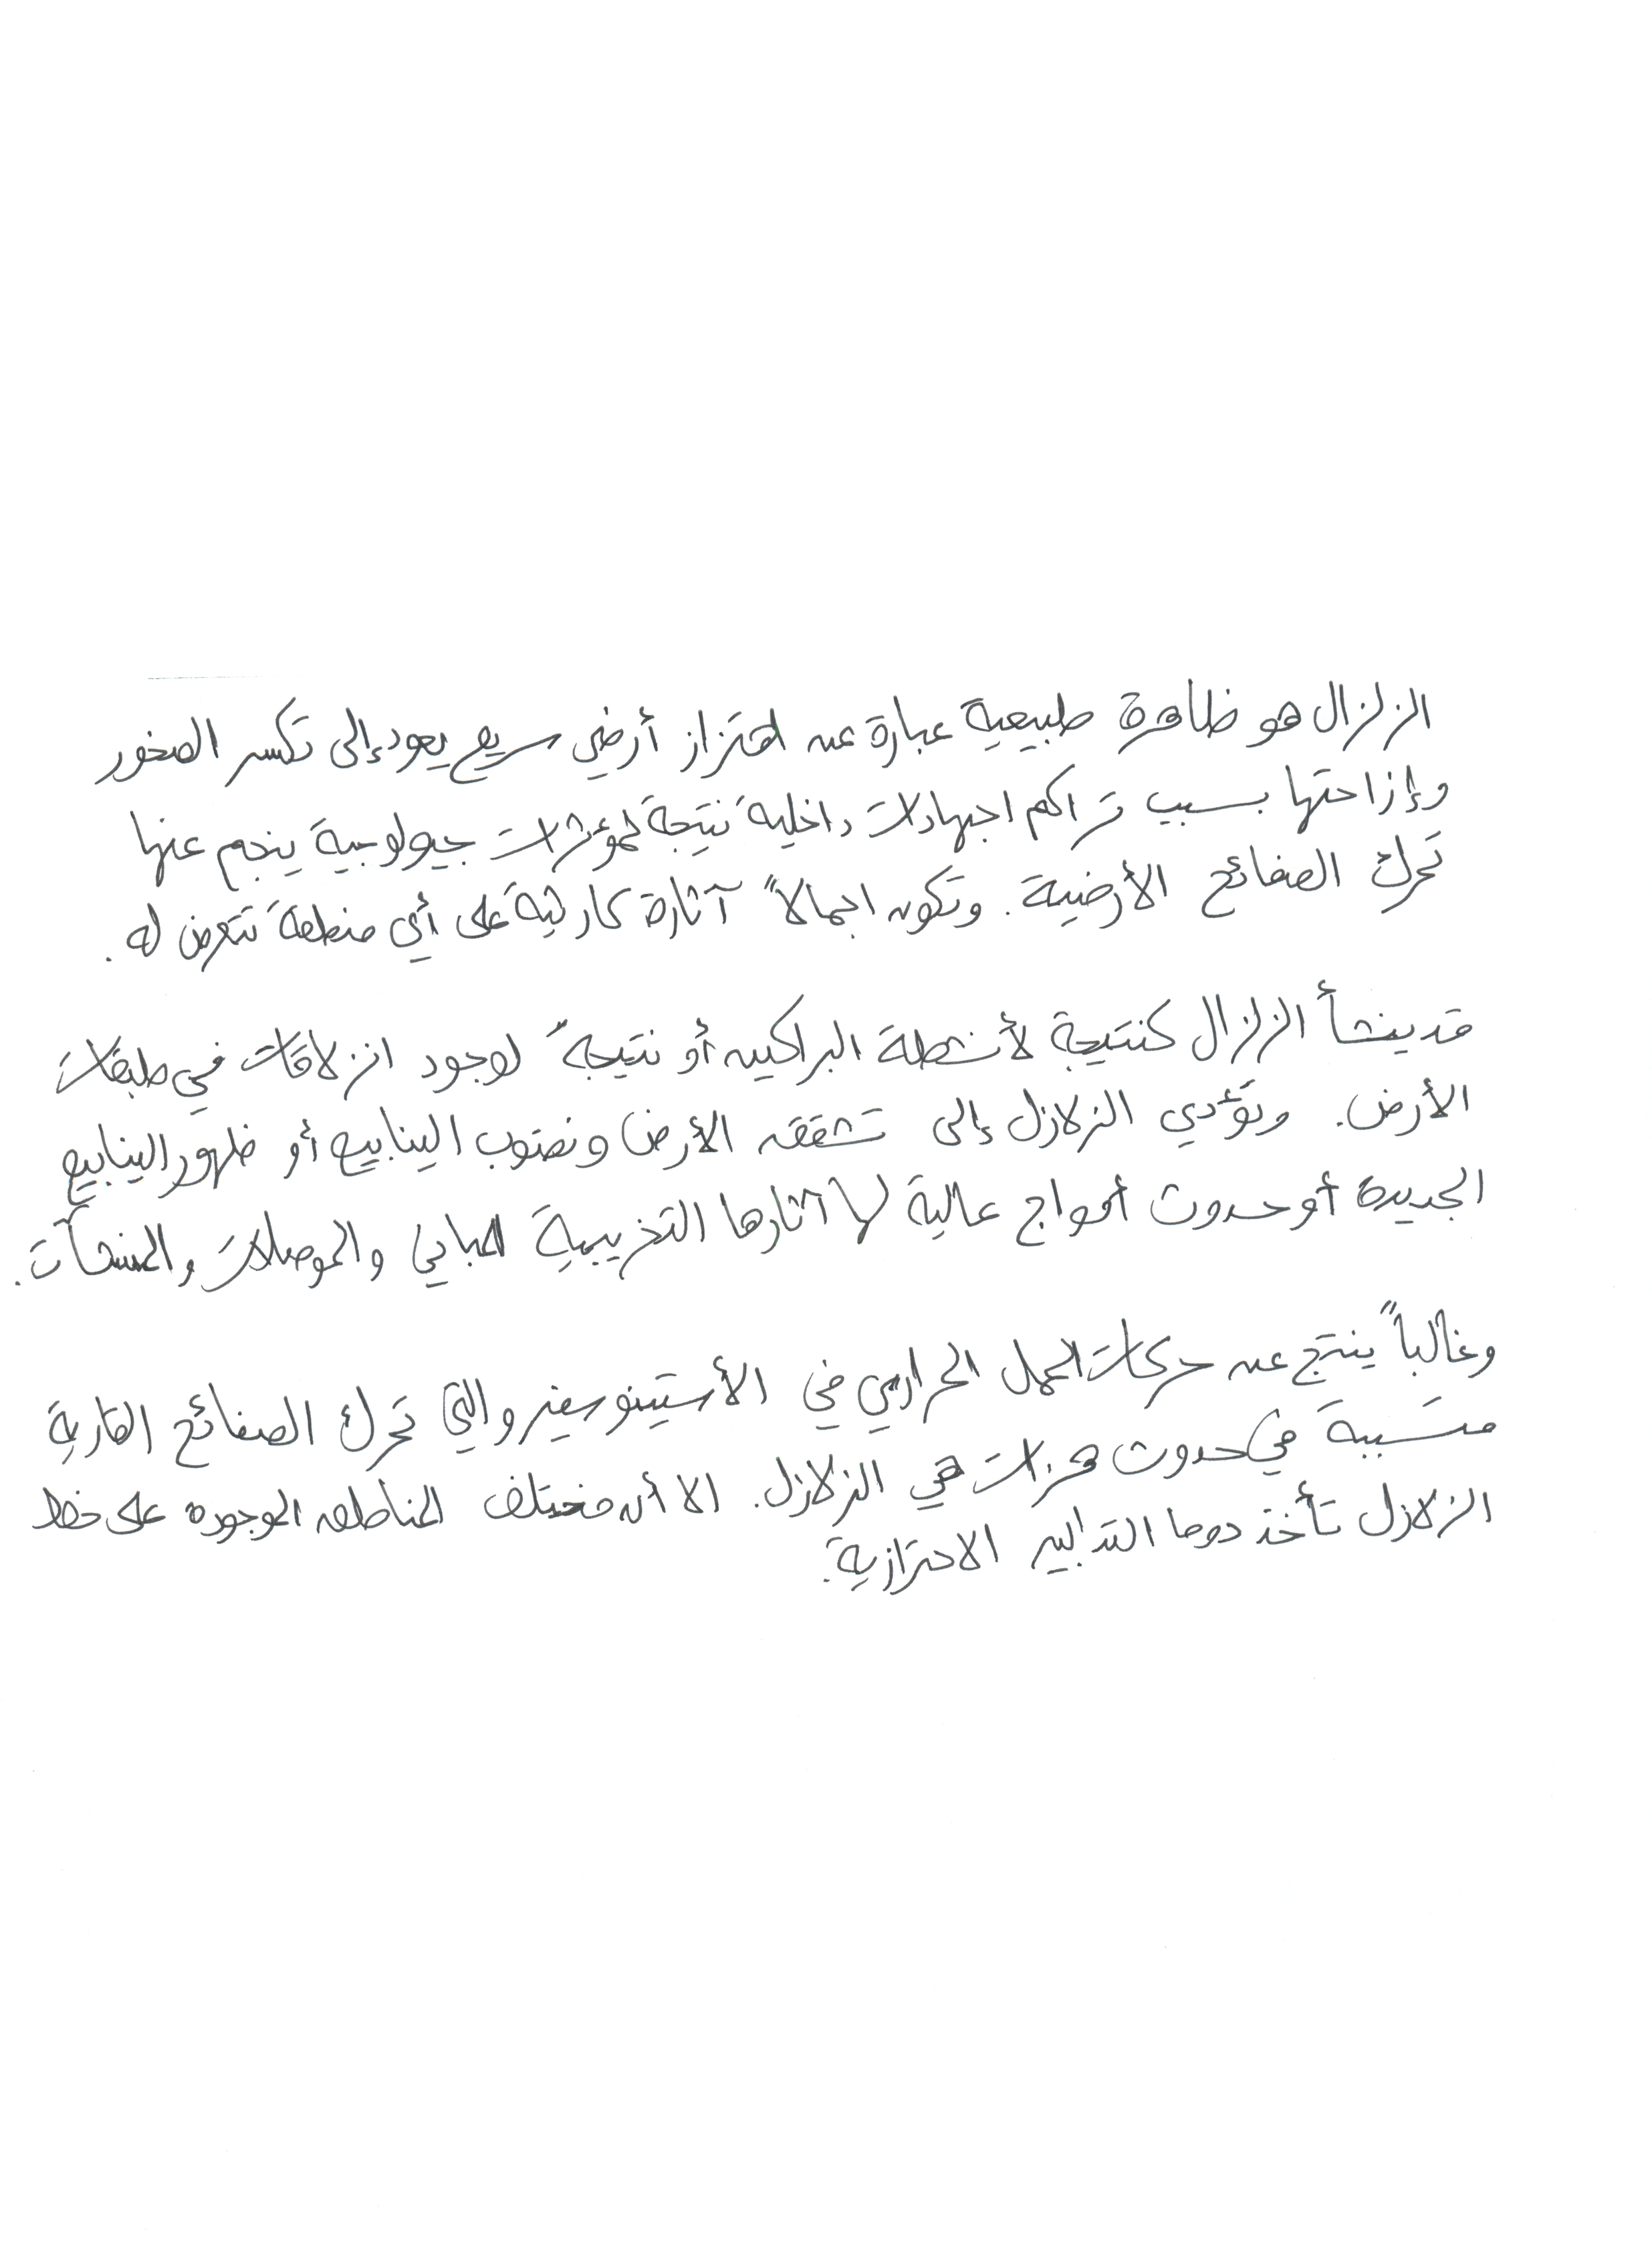 الزلزال هو ظاهرة طبيعية عبارة عن اهتزاز أرضي سريع يعود إلى تكسر الصخور
وإزاحتها بسبب تراكم اجهادات داخلية نتيجة لمؤثرات جيولوجية ينجم عنها
تحرك الصفائح الأرضية. وتكون اجمالاً آثارة كارثية على أي منطقة تتعرض له.
قد ينشأ الزلزال كنتيجة لأنشطة البراكين أو نتيجة لوجود انزلاقات في طبقات
الأرض. وتؤدي الزلازل إلى تشقق الأرض ونضوب الينابيع أو ظهور الينابيع
الجديدة أو حدوث أمواج عالية لها آثارها التخريبية للمباني والموصلات والمنشآت.
وغالباً ينتج عن حركات الحمل الحراري في الأستينوسفير والتي تحرك الصفائح القارية
متسببة في حدوث هزات هي الزلازل. الا أن مختلف المناطق الموجودة على خط
الزلازل تأخذ دوما التدابير الاحترازية.